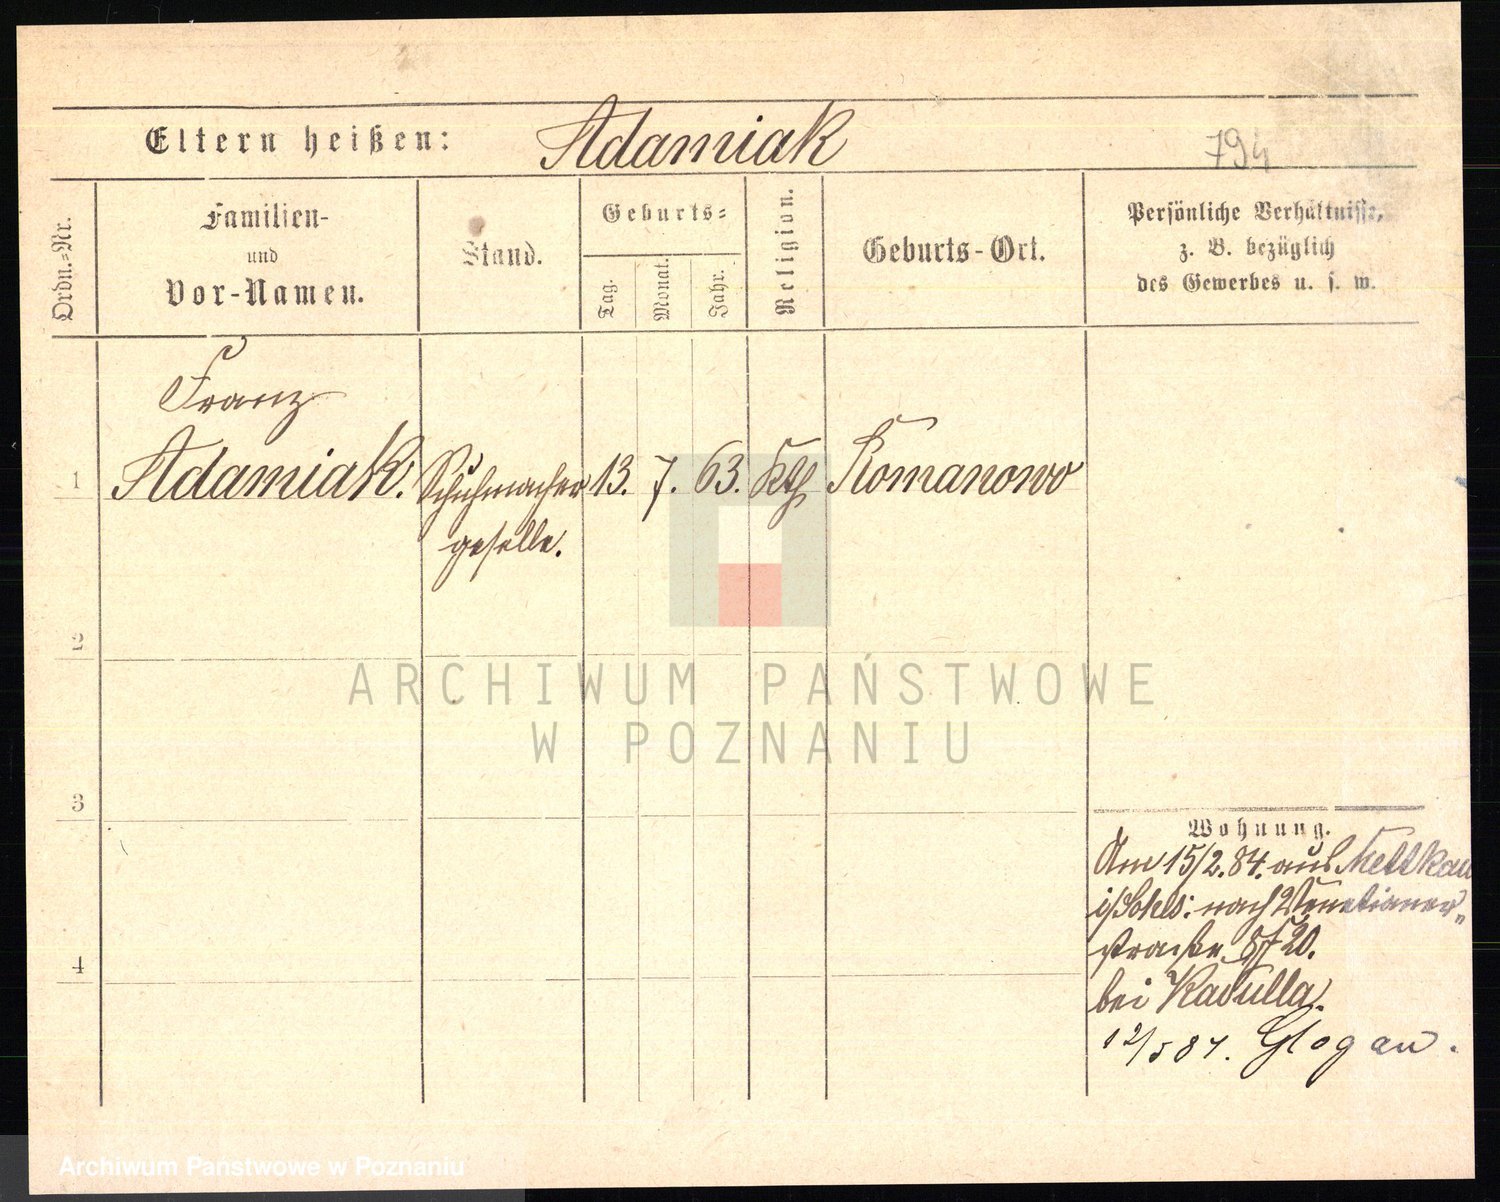 Eltern heißen: Adamiak
794
Ordn.=Nr.
Familien-
und
Vor-Namen.
Stand.
Geburts=
Tag.
Monat.
Jahr.
Religion.
Geburts-Ort.
Persönliche Verhältnisse,
z. B. bezüglich
des Gewerbes u. s. w.
Franz
1 Adamiak. Schuhmacher 13. 7. 63. Kth Romanowo
geselle.
2
ARCHIWUM PAŃSTWOWE
W POZNANIU
3
Wohnung.
Am 15/2.84. aus Nettkau
i/Schls: nach Venetianer„
4
straße 20.
bei Kadulla.
12/5 84. Glogau.
Archiwum Państwowe w Poznaniu